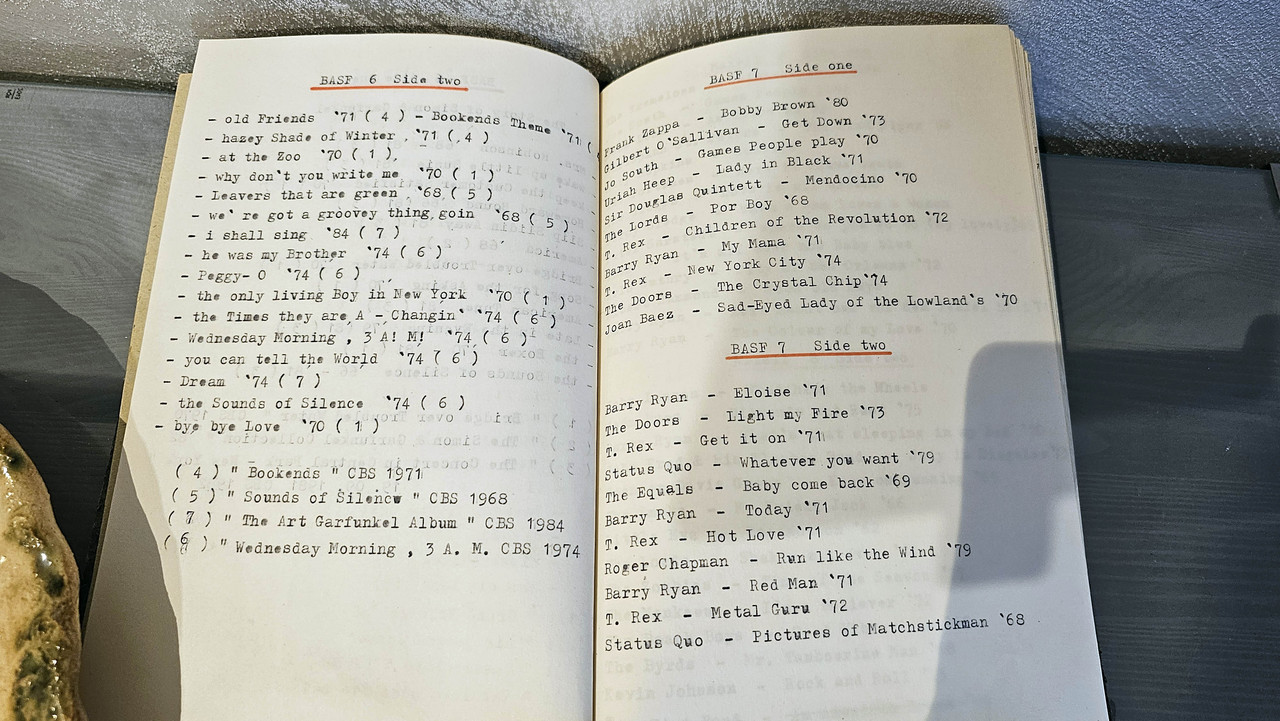 BASF 6 Side two
- old Friends '71 ( 4 ) - Bookends Theme '71 (
- hazey Shade of Winter, '71 ( 4 )
- at the Zoo '70 ( 1 ),
- why don't you write me '70 ( 1 )
- Leavers that are green '68 ( 5 )
- we're got a groovey thing goin '68 ( 5 )
- i shall sing '84 ( 7 )
- he was my Brother '74 ( 6 )
- Peggy- O '74 ( 6 )
- the only living Boy in New York '70 ( 1 )
- the Times they are A - Changin' '74 ( 6 )
- Wednesday Morning , 3 A! M! '74 ( 6 )
- you can tell the World '74 ( 6 )
- Dream '74 ( 7 )
- the Sounds of Silence '74 ( 6 )
- bye bye Love '70 ( 1 )
( 4 ) " Bookends " CBS 1971
( 5 ) " Sounds of Silence " CBS 1968
( 7 ) " The Art Garfunkel Album " CBS 1984
( 6 ) " Wednesday Morning , 3 A. M. CBS 1974
BASF 7 Side one
Frank Zappa - Bobby Brown '80
Gilbert O'Sallivan - Get Down '73
Jo South - Games People play '70
Uriah Heep - Lady in Black '71
Sir Douglas Quintett - Mendocino '70
The Lords - Por Boy '68
T. Rex - Children of the Revolution '72
Barry Ryan - My Mama '71
T. Rex - New York City '74
The Doors - The Crystal Chip '74
Joan Baez - Sad-Eyed Lady of the Lowland's '70
BASF 7 Side two
Barry Ryan - Eloise '71
The Doors - Light my Fire '73
T. Rex - Get it on '71
Status Quo - Whatever you want '79
The Equals - Baby come back '69
Barry Ryan - Today '71
T. Rex - Hot Love '71
Roger Chapman - Run like the Wind '79
Barry Ryan - Red Man '71
T. Rex - Metal Guru '72
Status Quo - Pictures of Matchstickman '68